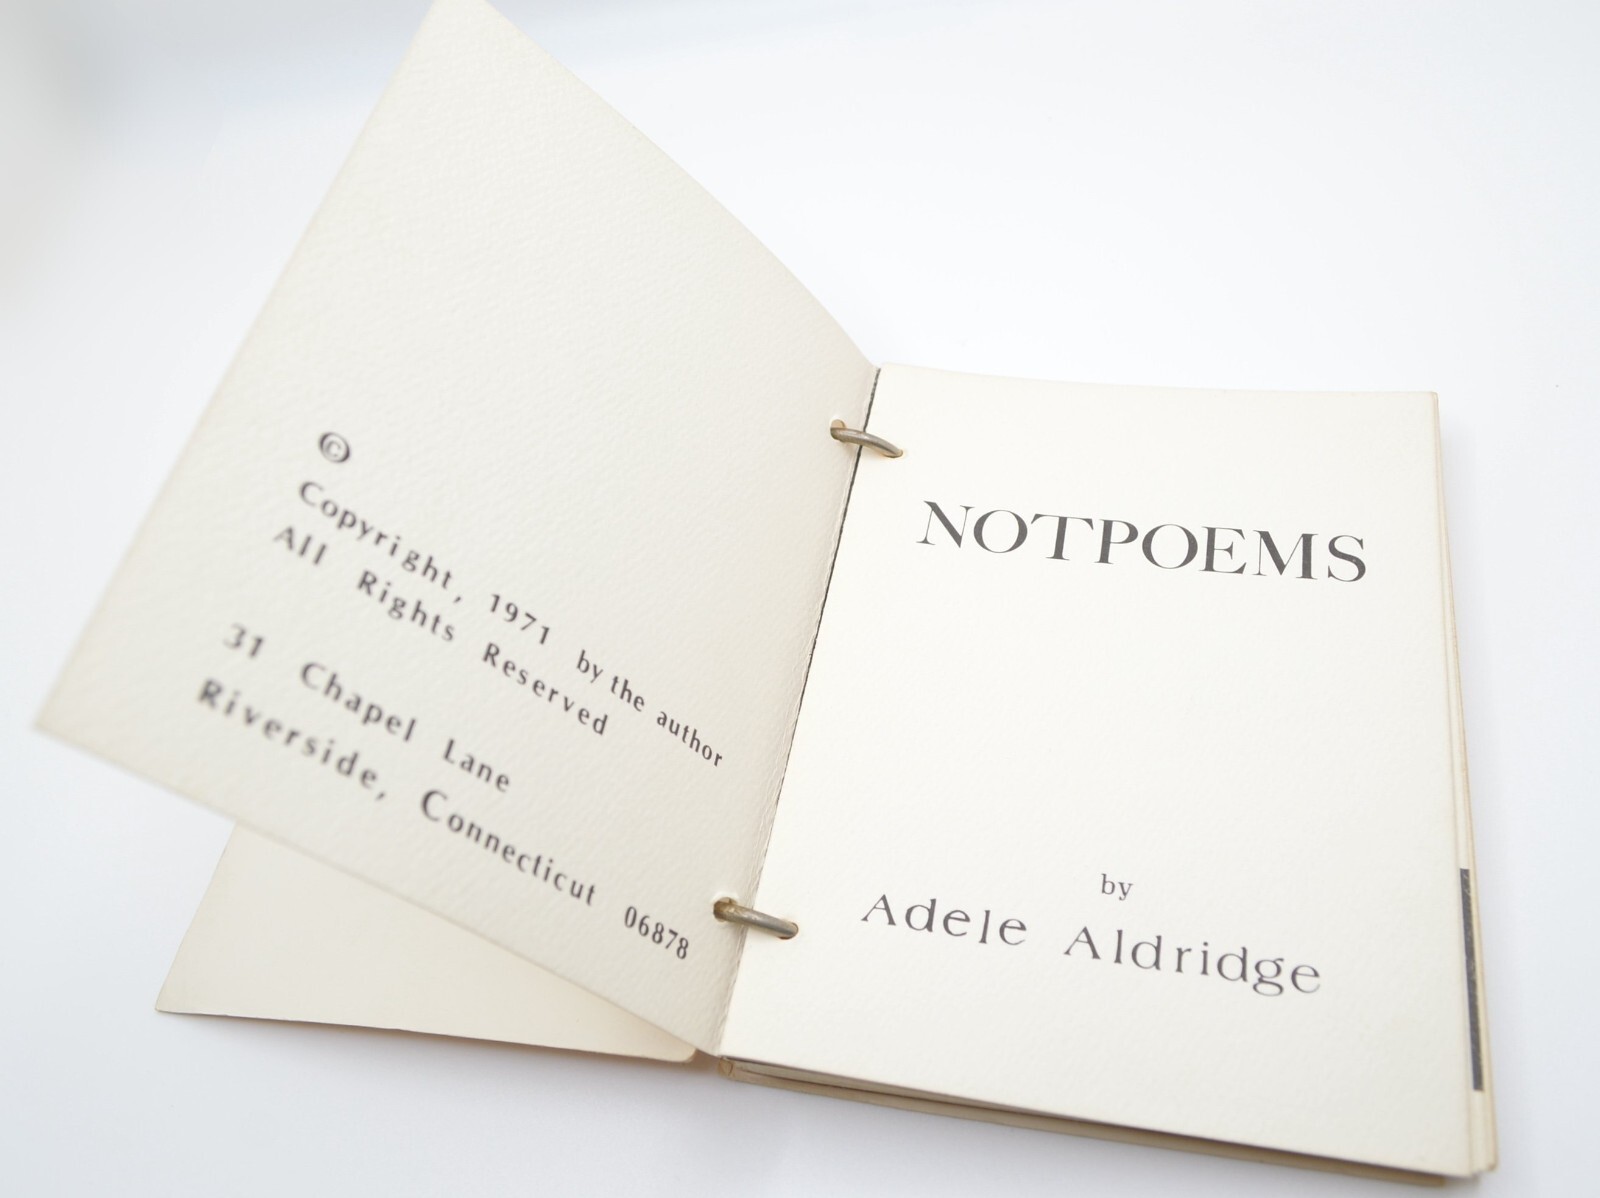 ©
Copyright, 1971 by the author
All Rights Reserved
31 Chapel Lane
Riverside, Connecticut 06878
NOTPOEMS
by
Adele Aldridge